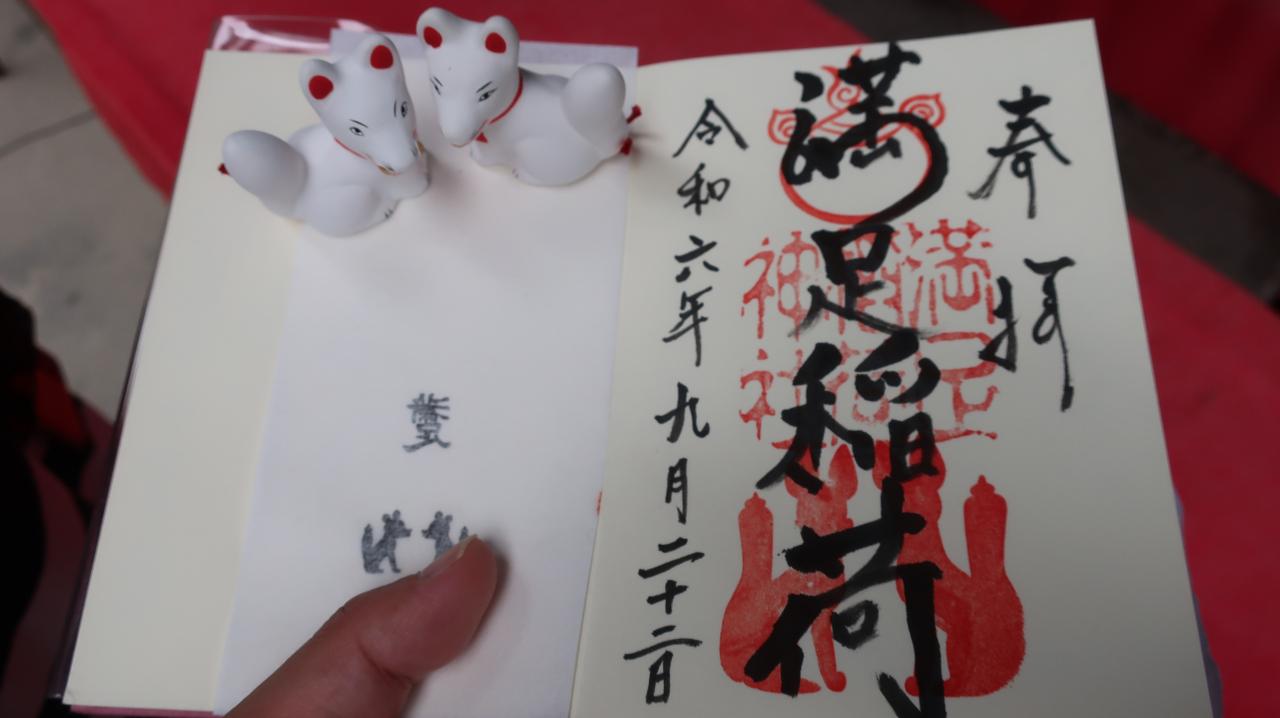 奉拝
満足稲荷
満足稲荷神社
令和六年九月二十二日